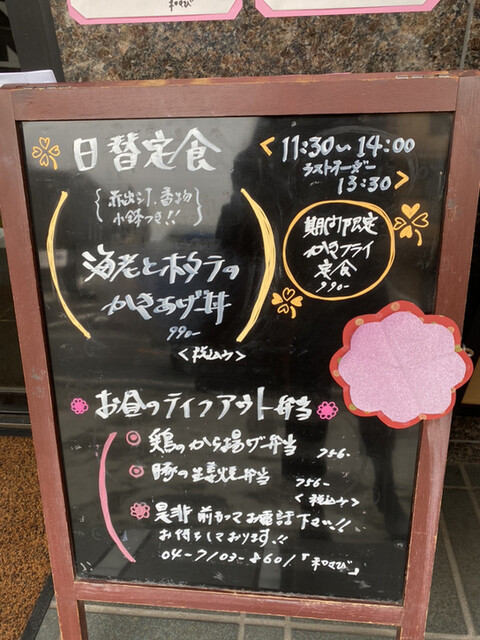 和むすび
日替定食
<11:30〜14:00
ラストオーダー
13:30>
{赤出汁、香物
小鉢つき!!}
期間限定
かきフライ
定食
990-
海老とホタテの
かきあげ丼
990-
<税込み>
お昼のテイクアウト弁当
鶏のから揚げ弁当 756-
豚の生姜焼弁当 756-
<税込み>
是非前もってお電話下さい!!
お待ちしております!!
04-7103-8601「和むすび」